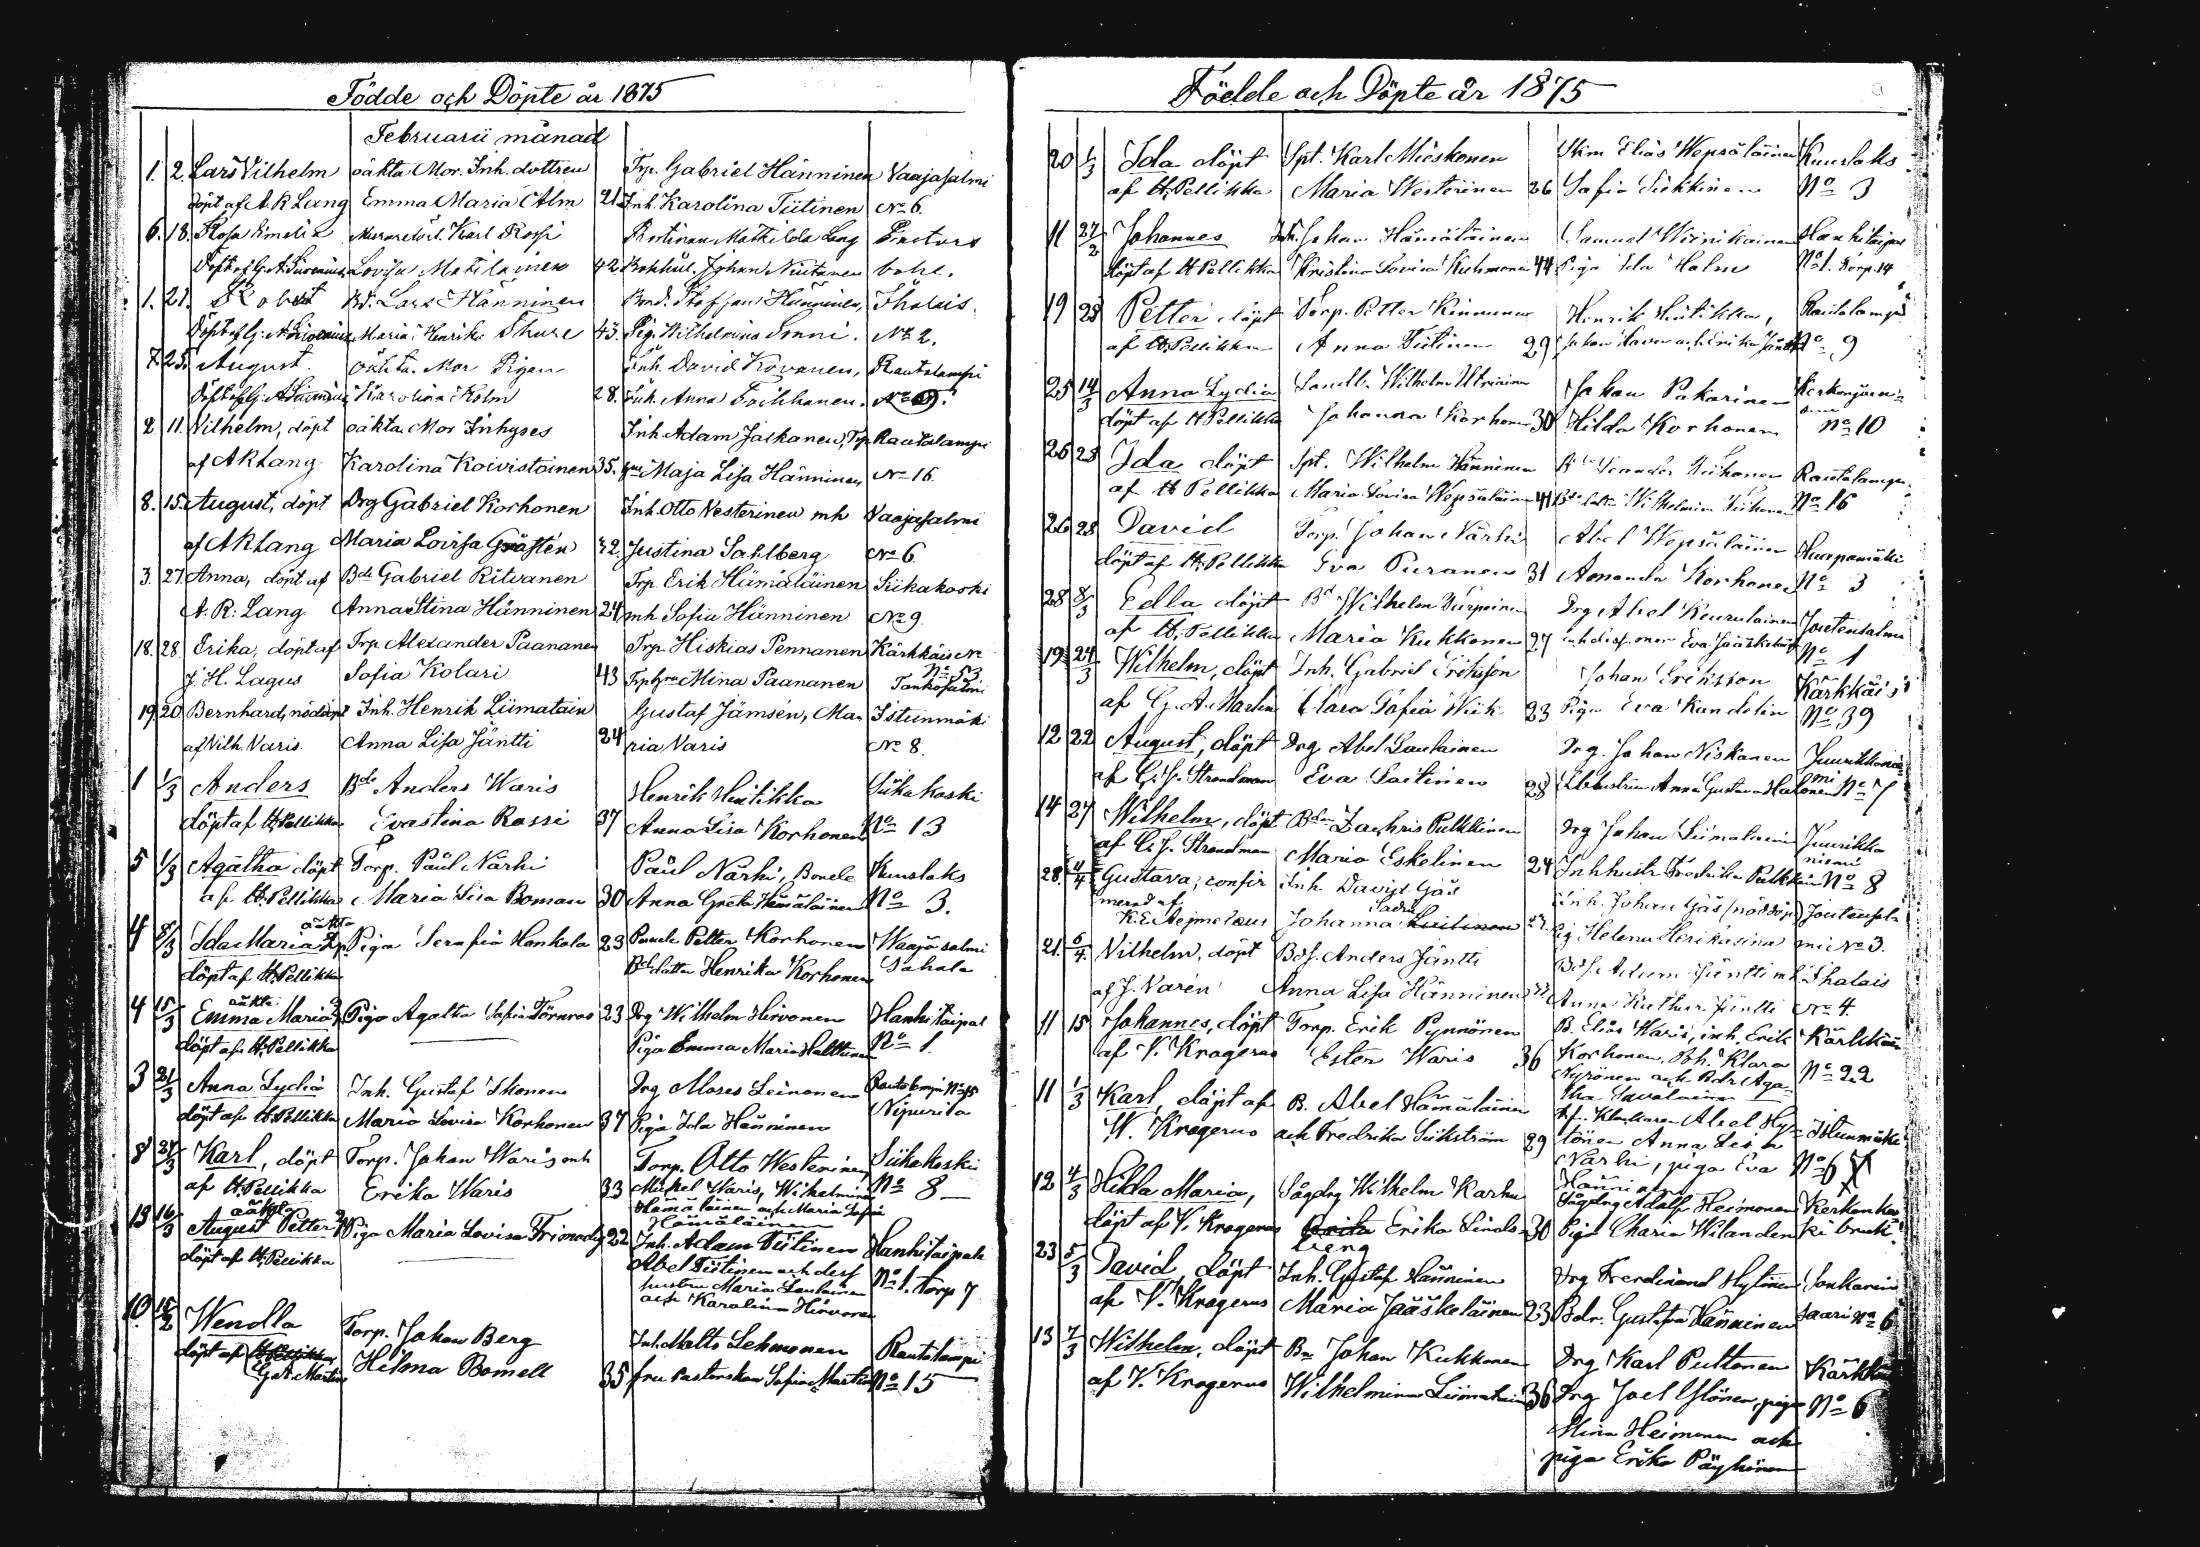 Födde och Döpte år 1875
Februarii månad
1. 2. Lars Vilhelm oäkta Mor. Inh. dottren Trp. Gabriel Hänninen Vaajasalmi
döpt af A. R Lang Emma Maria Alm 21 Inh. Karolina Tiitinen No 6.
6. 18. Rosa Emelia Karl Rossi Mathilda Lang
Döpt af G. A. Lovisa Matilainen 42 Johan Niutanen bohl.
1. 21. Robert Bd. Lars Hänninen Bond. Staffan Hänninen, Thalais
Döpt af G. A. Maria Henrika Thure 43. Pig. Wilhelmina Onni. No 2.
7. 25. August. oäkta. Mor Pigan Inh. David Kovanen, Rautalampi
Döpt af G. A. Karolina Holm 28. Anna No
2. 11. Vilhelm, döpt oäkta Mor Inhyses Inh. Adam Jalkanen, Trp Rautalampi
af A R Lang Karolina Koivistoinen 35. Maja Lisa Hänninen No 16.
8. 15. August, döpt Drg Gabriel Korhonen Inh. Otto Vesterinen mh Vaajasalmi
af A R Lang Maria Lovisa Grästen 32. Justina Sahlberg No 6.
3. 27. Anna, döpt af Bde Gabriel Ritvanen Trp Erik Hämäläinen Siikakoski
A. R. Lang Anna Stina Hänninen 24 mh Sofia Hänninen No 9.
18. 28. Erika, döpt af Trp Alexander Paananen Trp. Hiskias Pennanen Kärkkäis No
J. H. Lagus Sofia Kolari 43 Mina Paananen No 53 Tankosalmi
19. 20. Bernhard, nöddöpt Inh. Henrik Liimatain Gustaf Jämsén, Ma- Istunmäki
af Vilh. Varis Anna Lisa Jäntti 24 ria Varis No 8.
1 1/3 Anders Bde Anders Waris Henrik Hintikka Siikakoski
döpt af H. Pellikka Evastina Rossi 37 Anna Lisa Korhonen No 13
5 1/3 Agatha döpt Torp. Pául Närhi Paul Närhi, Bonde Kuuslaks
af H. Pellikka Maria Lisa Boman 30 Anna Greta Hämäläinen No 3.
4 8/3 Ida Maria oäkta Piga Serafia Honkala 23 Bonde Petter Korhonen Waajasalmi
döpt af H. Pellikka Bdedotter Henrika Korhonen Sahala
4 15/3 Emma Maria oäkta Piga Agatha Sofia Törnroos 23 Drg Wilhelm Hirvonen Hanhitaipal
döpt af H. Pellikka Piga Emma Maria Halttunen No 1.
3 21/3 Anna Lydia Inh. Gustaf Ihonen Drg Moses Leinonen Rautalampi No 15
döpt af H. Pellikka Maria Lovisa Korhonen 37 Piga Ida Hänninen Nipurila
8 24/3 Karl, döpt Torp. Johan Waris mh Torp. Otto Westerinen Siikakoski
af H. Pellikka Erika Waris 33 Mickel Waris, Wilhelmina No 8
Hämäläinen och Maria Sofia
Hämäläinen
13 16/3 August Petter oäkta Piga Maria Lovisa 22 Inh. Adam Tiitinen Hanhitaipale
döpt af H. Pellikka Abel Tiitinen och dess No 1. Torp 7
hustru Maria Laulainen
och Karolina Hirvonen
10 15/2 Wendla Torp. Johan Berg Inh. Matts Lehmonen Rautalampi
döpt af H. Pellikka G. A. Martin Hilma Bomell 35 fru Pastorskan Sofia Martin No 15
Födde och Döpte år 1875
20 1/3 Ida döpt Spt. Karl Mieskonen Skm Elias Wepsäläinen Kuuslaks
af H. Pellikka Maria Westerinen 26 Sofia Tiekkinen No 3
11 27/2 Johannes Inh. Johan Hämäläinen Samuel Wiinikainen Hanhitaipal
döpt af H. Pellikka Kristina Lovisa Kuhmonen 44 Piga Ida Holm No 1. Torp. 14
19 28 Petter döpt Torp. Petter Kinnunen Henrik Hintikka, Rautalampi
af H. Pellikka Anna Tiitinen 29 Johan och Erika Jäntti No 9
25 14/3 Anna Lydia Landtb. Wilhelm Utriainen Johan Pakarinen Kerkonjoen-
döpt af H. Pellikka Johanna Korhonen 30 Hilda Korhonen No 10
26 28 Ida döpt Spt. Wilhelm Hänninen Leander Rautalampi
af H Pellikka Maria Lovisa Wepsäläinen 41 Wilhelmina No 16
26 28 David Torp. Johan Närhi Abel Wepsäläinen Haapamäki
döpt af H. Pellikka Eva Piiranen 31 Amanda Korhonen No 3
28 8/3 Edla döpt Bd Wilhelm Turpeinen Drg Abel Keurulainen Joutensalmi
af H. Pellikka Maria Kukkonen 27 Eva Jääskeläinen No 1
19 24/3 Wilhelm, döpt Inh. Gabriel Eriksson Johan Eriksson Kärkkäis
af G. A. Martin Clara Sofia Wiik 23 Piga Eva Kandelin No 39
12 22 August, döpt Drg Abel Laulainen Drg. Johan Niskanen Juurikkanie-
af C. J. Strandman Eva Laitinen 28 Anna Gustava Halonen mi No 7
14 27 Wilhelm, döpt Bdn Zachris Pulkkinen Drg Johan Liimatainen Juurikka
af C. J. Strandman Maria Eskelinen 24 Inhhustr Fredrika Pulkkinen niemi No 8
28. 4/4 Gustava; confir- Inh. David Gås Inh. Johan Gås (nöddöp) Joutensal-
merad af K. E. Aejmelæus Johanna Luitinen Pig Helena mi No 3.
21. 5/4 Vilhelm, döpt Bds. Anders Jäntti Bds. Adam Jäntti mh Thalais
af J. Varén Anna Lisa Hänninen Anna Kathar. Jäntti No 4.
11 15 Johannes, döpt Torp. Erik Pynnönen B. Elias Waris, inh. Erik Kärkkäis
af V. Krogerus Ester Waris 36 Korhonen, Bh. Klara No 22
Nyrönen och Bdr Aga-
tha Savolainen
11 1/3 Karl, döpt af B. Abel Hämäläinen Klockaren Abel Hy- Istunmäki
W. Krogerus och Fredrika Siikström 29 tönen Anna Lisa No 6
Närhi, piga Eva
Hänninen
12 4/3 Hilda Maria, Sågdrg Wilhelm Karhu Sågdrng Adolf Heimonen Kerkonkos-
döpt af V. Krogerus Erika Linds- 30 Piga Maria Wilander ki bruk
berg
23 5/3 David döpt Inh. Gustaf Hänninen Drg Ferdinand Hytönen Sonkarin
af V. Krogerus Maria Jääskeläinen 23 Bdr. Gustafva Hänninen saari No 6
13 7/3 Wilhelm, döpt Bn Johan Kukkonen Drg Karl Puttonen Kärkkäis
af V. Krogerus Wilhelmina Liimatainen 36 Drg Joel Ylönen, piga No 6
Mina Heimonen och
piga Erika Päyhönen